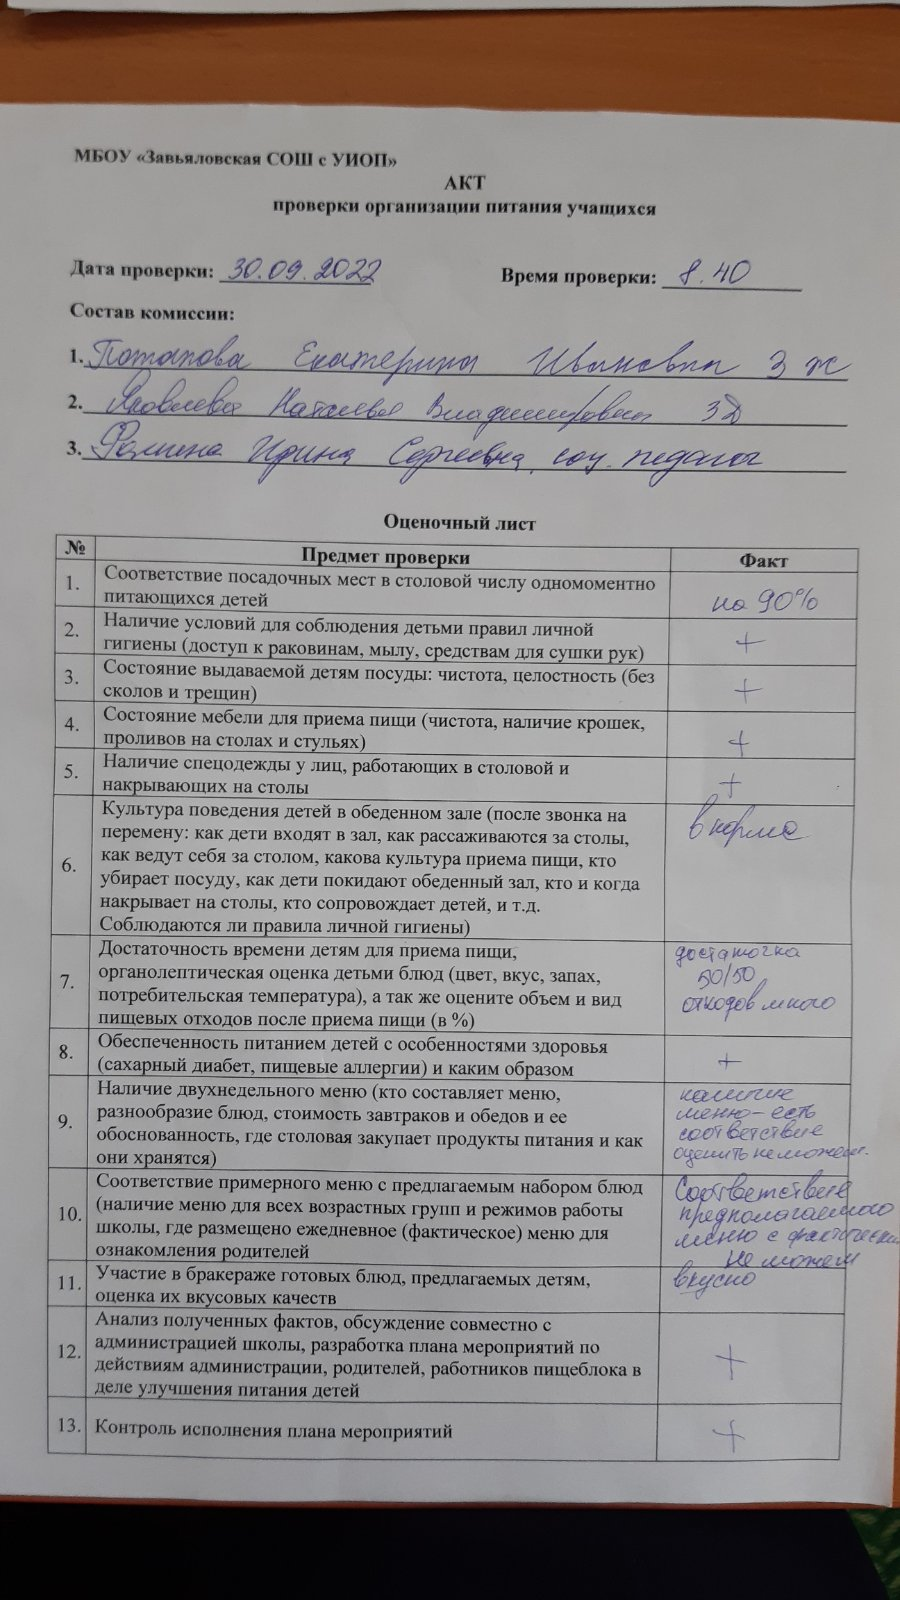 МБОУ «Завьяловская СОШ с УИОП»
АКТ
проверки организации питания учащихся
Дата проверки: 30.09.2022 Время проверки: 8.40
Состав комиссии:
1. Потапова Екатерина Ивановна 3 ж
2. Яковлева Наталья Владимировна 3Д
3. Ирина Сергеевна, соц. педагог
Оценочный лист
№ Предмет проверки Факт
1. Соответствие посадочных мест в столовой числу одномоментно
питающихся детей
на 90%
2. Наличие условий для соблюдения детьми правил личной
гигиены (доступ к раковинам, мылу, средствам для сушки рук)
+
3. Состояние выдаваемой детям посуды: чистота, целостность (без
сколов и трещин)
+
4. Состояние мебели для приема пищи (чистота, наличие крошек,
проливов на столах и стульях)
+
5. Наличие спецодежды у лиц, работающих в столовой и
накрывающих на столы
+
6. Культура поведения детей в обеденном зале (после звонка на
перемену: как дети входят в зал, как рассаживаются за столы,
как ведут себя за столом, какова культура приема пищи, кто
убирает посуду, как дети покидают обеденный зал, кто и когда
накрывает на столы, кто сопровождает детей, и т.д.
Соблюдаются ли правила личной гигиены)
в норме
7. Достаточность времени детям для приема пищи,
органолептическая оценка детьми блюд (цвет, вкус, запах,
потребительская температура), а так же оцените объем и вид
пищевых отходов после приема пищи (в %)
достаточна
50/50
отходов много
8. Обеспеченность питанием детей с особенностями здоровья
(сахарный диабет, пищевые аллергии) и каким образом
+
9. Наличие двухнедельного меню (кто составляет меню,
разнообразие блюд, стоимость завтраков и обедов и ее
обоснованность, где столовая закупает продукты питания и как
они хранятся)
наличие
меню - есть
соответствие
оценить не можем.
10. Соответствие примерного меню с предлагаемым набором блюд
(наличие меню для всех возрастных групп и режимов работы
школы, где размещено ежедневное (фактическое) меню для
ознакомления родителей
Соответствие
предполагаемого
меню с фактическим
не можем
11. Участие в бракераже готовых блюд, предлагаемых детям,
оценка их вкусовых качеств
вкусно
12. Анализ полученных фактов, обсуждение совместно с
администрацией школы, разработка плана мероприятий по
действиям администрации, родителей, работников пищеблока в
деле улучшения питания детей
+
13. Контроль исполнения плана мероприятий
+